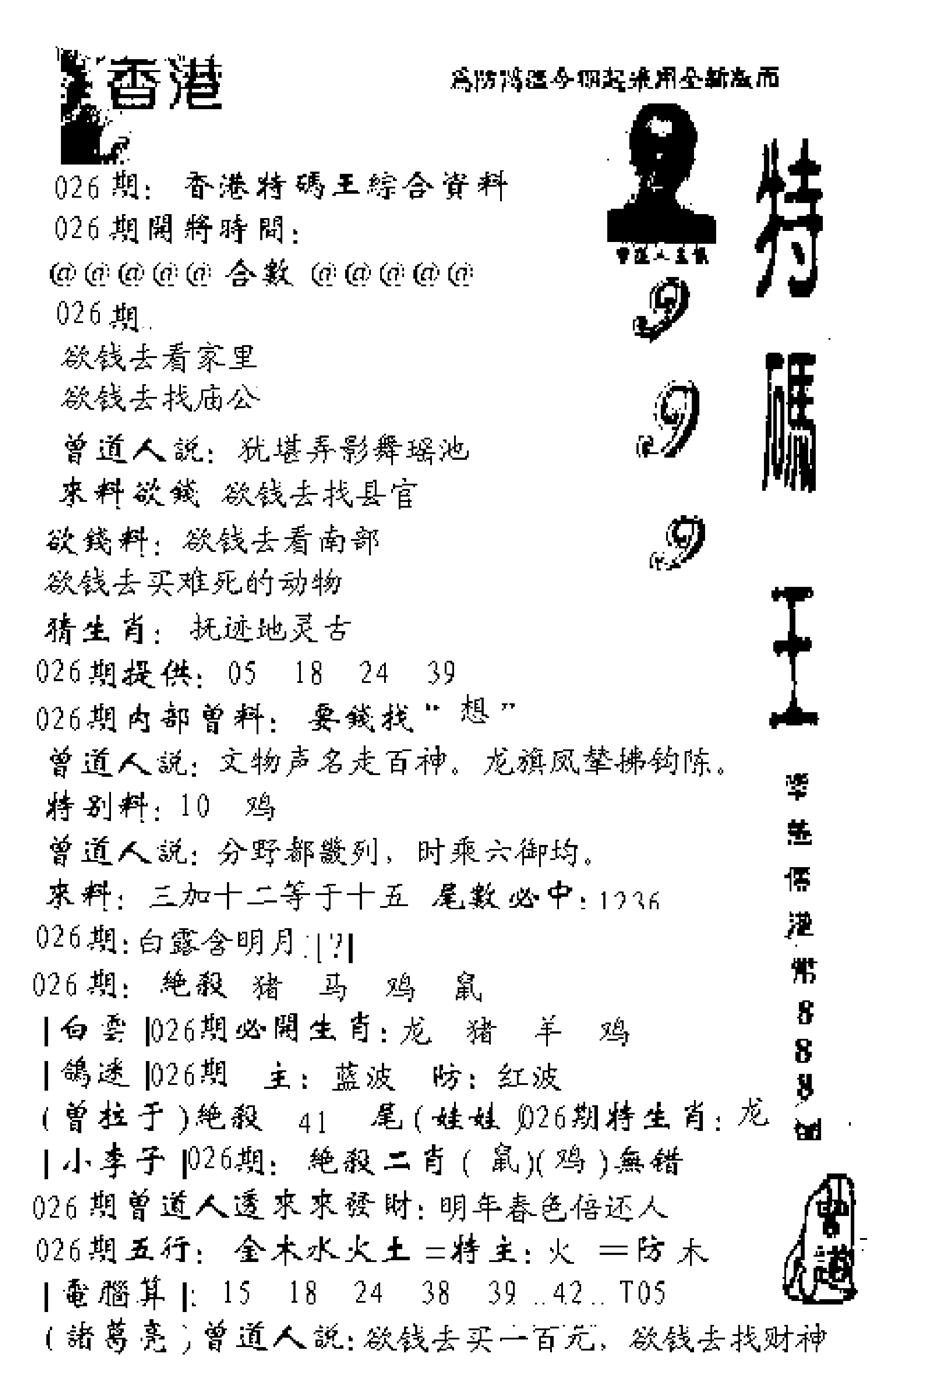 香港
為防濤溫今期起采用全新版面
026期: 香港特碼王綜合資料
026期開將時間:
@@@@@合數@@@@@
026期..
欲钱去看家里
欲钱去找庙公
曾道人説: 犹堪弄影舞瑶池
來料欲錢 欲钱去找县官
欲錢料: 欲钱去看南部
欲钱去买难死的动物
猜生肖: 抚迹地灵古
026期提供: 05 18 24 39
026期内部曾料: 要錢找“想”
曾道人説: 文物声名走百神。龙旗凤辇拂钩陈。
特别料: 10 鸡
曾道人説: 分野都畿列, 时乘六御均。
來料: 三加十二等于十五 尾數必中: 1236
026期:白露含明月:[?]
026期: 絶殺 猪 马 鸡 鼠
|白雲|026期必開生肖:龙 猪 羊 鸡
|鴿迷|026期 主: 蓝波 防: 红波
(曾拉于)絶殺 41 尾(娃娃)026期特生肖: 龙
|小李子|026期: 絶殺二肖(鼠)(鸡)無错
026期曾道人透來來發財: 明年春色倍还人
026期五行: 金木水火土=特主: 火 =防木
|電腦算|: 15 18 24 38 39..42..T05
(諸葛亮)曾道人説:欲钱去买一百元, 欲钱去找财神
曾道人主俱
999
特碼王
港幣888
曾道